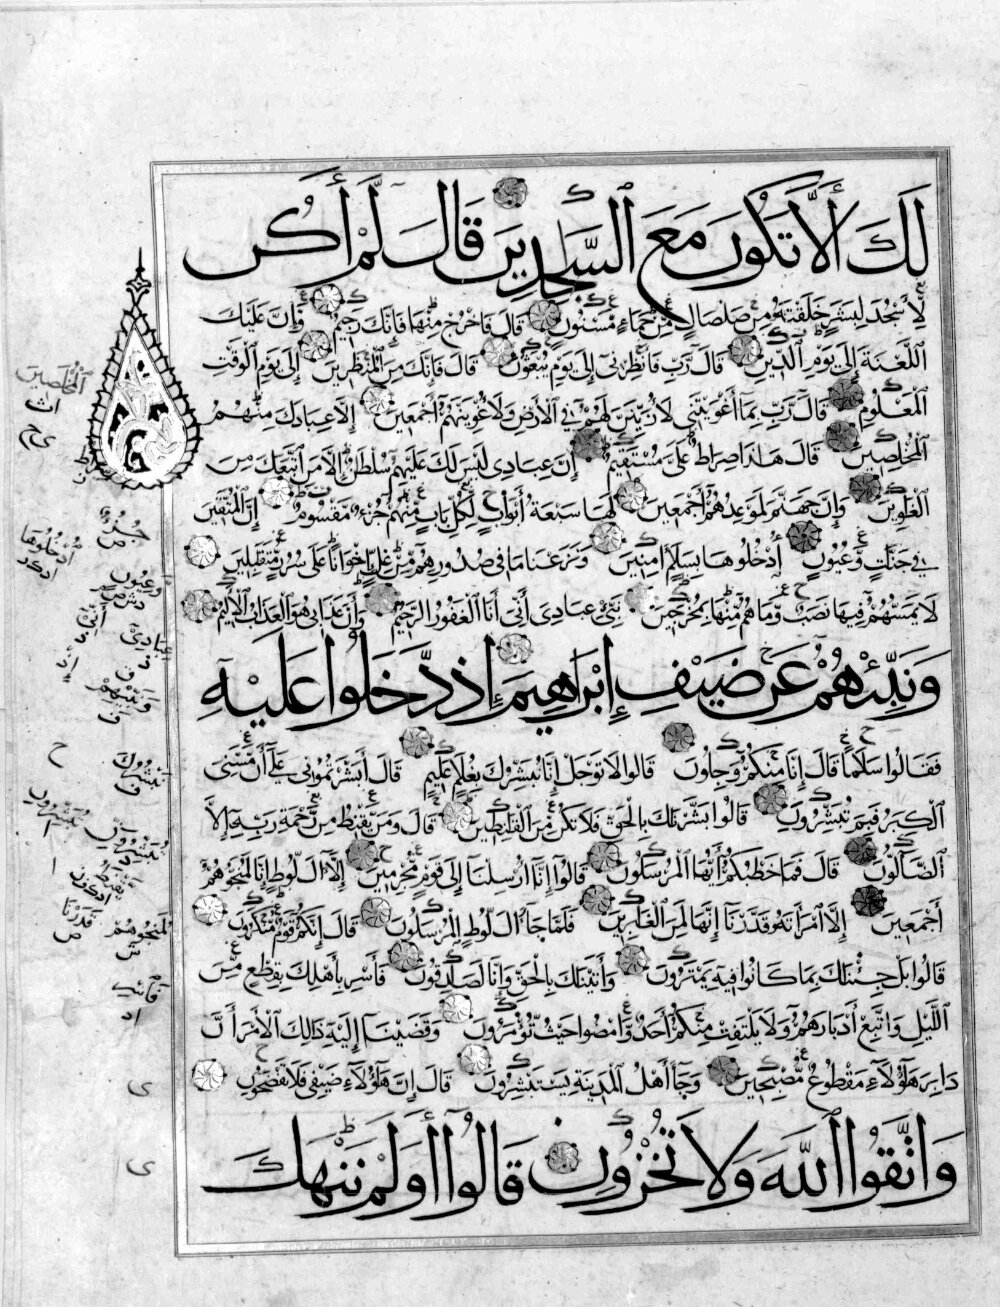 لَكَ أَلَّا تَكُونَ مَعَ ٱلسَّٰجِدِينَ قَالَ لَمْ أَكُن
لِّأَسْجُدَ لِبَشَرٍ خَلَقْتَهُۥ مِن صَلْصَالٍ مِّنْ حَمَإٍ مَّسْنُونٍ قَالَ فَاخْرُجْ مِنْهَا فَإِنَّكَ رَجِيمٌ وَإِنَّ عَلَيْكَ
اللَّعْنَةَ إِلَىٰ يَوْمِ الدِّينِ قَالَ رَبِّ فَأَنظِرْنِي إِلَىٰ يَوْمِ يُبْعَثُونَ قَالَ فَإِنَّكَ مِنَ الْمُنظَرِينَ إِلَىٰ يَوْمِ الْوَقْتِ
الْمَعْلُومِ قَالَ رَبِّ بِمَا أَغْوَيْتَنِي لَأُزَيِّنَنَّ لَهُمْ فِي الْأَرْضِ وَلَأُغْوِيَنَّهُمْ أَجْمَعِينَ إِلَّا عِبَادَكَ مِنْهُمُ
الْمُخْلَصِينَ قَالَ هَٰذَا صِرَاطٌ عَلَيَّ مُسْتَقِيمٌ إِنَّ عِبَادِي لَيْسَ لَكَ عَلَيْهِمْ سُلْطَانٌ إِلَّا مَنِ اتَّبَعَكَ مِنَ
الْغَاوِينَ وَإِنَّ جَهَنَّمَ لَمَوْعِدُهُمْ أَجْمَعِينَ لَهَا سَبْعَةُ أَبْوَابٍ لِكُلِّ بَابٍ مِنْهُمْ جُزْءٌ مَقْسُومٌ إِنَّ الْمُتَّقِينَ
فِي جَنَّٰتٍ وَعُيُونٍ أُدْخُلُوهَا بِسَلَٰمٍ آمِنِينَ وَنَزَعْنَا مَا فِي صُدُورِهِمْ مِنْ غِلٍّ إِخْوَانًا عَلَىٰ سُرُرٍ مُتَقَٰبِلِينَ
لَا يَمَسُّهُمْ فِيهَا نَصَبٌ وَمَا هُمْ مِنْهَا بِمُخْرَجِينَ نَبِّئْ عِبَادِي أَنِّي أَنَا الْغَفُورُ الرَّحِيمُ وَأَنَّ عَذَابِي هُوَ الْعَذَابُ الْأَلِيمُ
وَنَبِّئْهُمْ عَن ضَيْفِ إِبْرَاهِيمَ إِذْ دَّخَلُوا عَلَيْهِ
فَقَالُوا سَلَامًا قَالَ إِنَّا مِنكُمْ وَجِلُونَ قَالُوا لَا تَوْجَلْ إِنَّا نُبَشِّرُكَ بِغُلَٰمٍ عَلِيمٍ قَالَ أَبَشَّرْتُمُونِي عَلَىٰ أَن مَّسَّنِيَ
الْكِبَرُ فَبِمَ تُبَشِّرُونَ قَالُوا بَشَّرْنَاكَ بِالْحَقِّ فَلَا تَكُن مِّنَ الْقَٰنِطِينَ قَالَ وَمَن يَقْنَطُ مِن رَّحْمَةِ رَبِّهِ إِلَّا
الضَّآلُّونَ قَالَ فَمَا خَطْبُكُمْ أَيُّهَا الْمُرْسَلُونَ قَالُوا إِنَّا أُرْسِلْنَا إِلَىٰ قَوْمٍ مُجْرِمِينَ إِلَّا آلَ لُوطٍ إِنَّا لَمُنَجُّوهُمْ
أَجْمَعِينَ إِلَّا امْرَأَتَهُ قَدَّرْنَا إِنَّهَا لَمِنَ الْغَابِرِينَ فَلَمَّا جَاءَ آلَ لُوطٍ الْمُرْسَلُونَ قَالَ إِنَّكُمْ قَوْمٌ مُنْكَرُونَ
قَالُوا بَلْ جِئْنَاكَ بِمَا كَانُوا فِيهِ يَمْتَرُونَ وَأَتَيْنَاكَ بِالْحَقِّ وَإِنَّا لَصَٰدِقُونَ فَأَسْرِ بِأَهْلِكَ بِقِطْعٍ مِّنَ
اللَّيْلِ وَاتَّبِعْ أَدْبَارَهُمْ وَلَا يَلْتَفِتْ مِنكُمْ أَحَدٌ وَامْضُوا حَيْثُ تُؤْمَرُونَ وَقَضَيْنَا إِلَيْهِ ذَٰلِكَ الْأَمْرَ أَنَّ
دَابِرَ هَٰؤُلَاءِ مَقْطُوعٌ مُصْبِحِينَ وَجَاءَ أَهْلُ الْمَدِينَةِ يَسْتَبْشِرُونَ قَالَ إِنَّ هَٰؤُلَاءِ ضَيْفِي فَلَا تَفْضَحُونِ
وَاتَّقُوا اللَّهَ وَلَا تُخْزُونِ قَالُوا أَوَلَمْ نَنْهَكَ
المخلصين
جزء
ادخلوها
وعيون
عبادي
نبشرك
تبشرون
قدرنا
لمنجوهم
فاسر